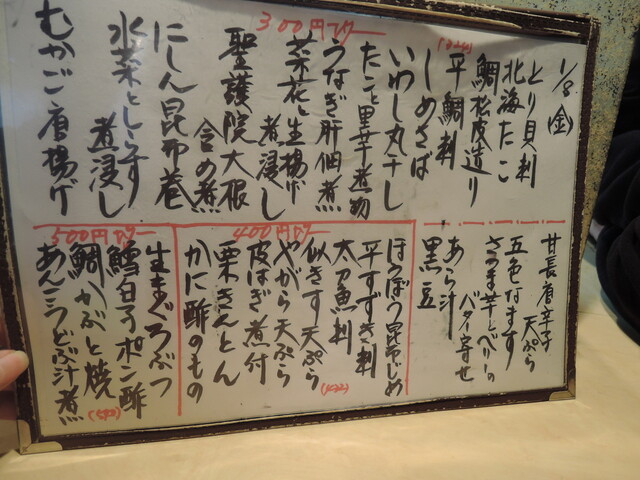 1/8(金)
とり貝刺
北海たこ
鯛松皮造り
平鯛刺
しめさば
いわし丸干し
たこと里芋煮物
うなぎ肝佃煮
300円
菜花と生揚げ
煮浸し
聖護院大根
含め煮
にしん昆布巻
水菜としらす
煮浸し
むかご唐揚げ
甘長唐辛子
天ぷら
五色なます
さつま芋とベリーの
バター寄せ
あら汁
黒豆
400円
ほうぼう昆布じめ
平すずき刺
太刀魚刺
似きす天ぷら
やがら天ぷら
皮はぎ煮付
栗きんとん
かに酢のもの
500円
生まぐろぶつ
鱈白子ポン酢
鯛かぶと焼
あんこうどぶ汁煮